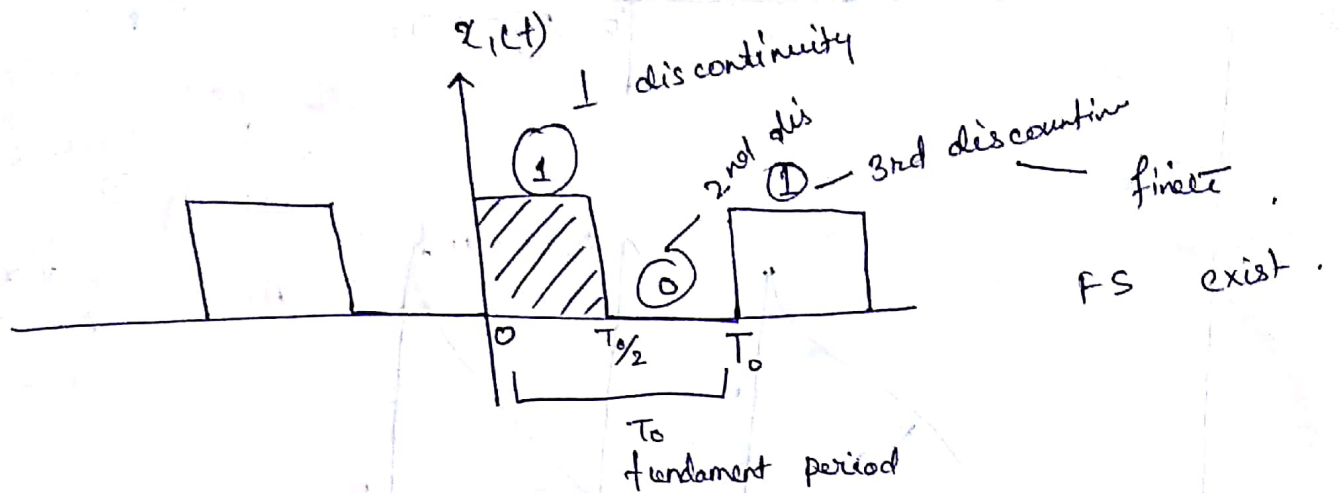 x₁(t)
1 discontinuity
1
2nd dis
1 — 3rd discountinu — finete .
0
FS exist .
0 T₀/2 T₀
T₀
fundament period